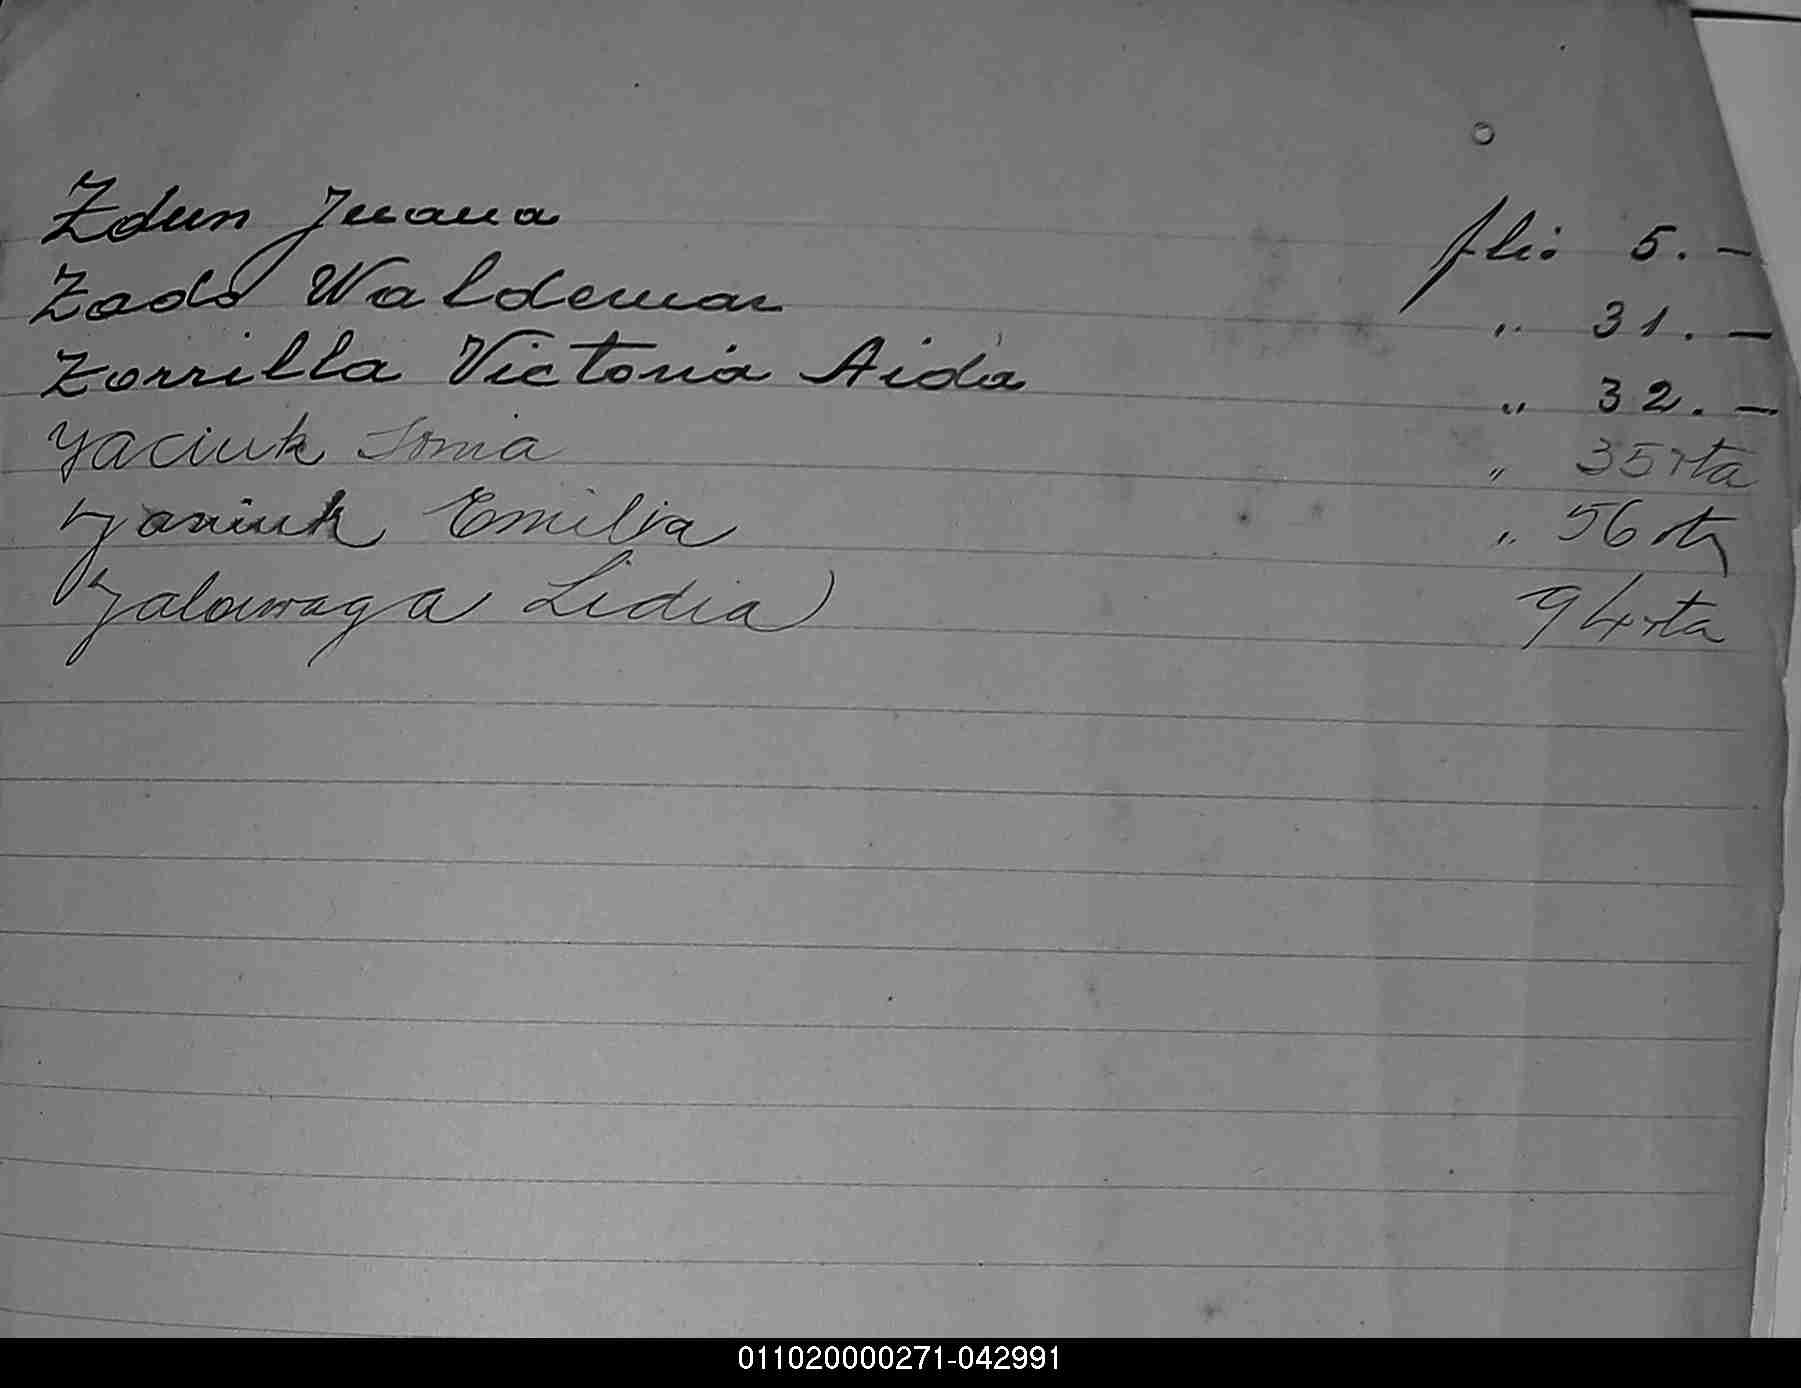 Zdun Juana flio 5. —
Zado Waldemar " 31. —
Zorrilla Victoria Aida " 32. —
Yaciuk Sonia " 35 vta
Yaniuk Emilia " 56 vta
Yalowaga Lidia 94 vta
011020000271-042991